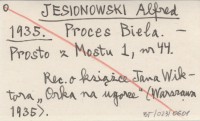 JESIONOWSKI Alfred
1935. Proces Biela. —
Prosto z Mostu 1, nr 44.
Rec. o książce Jana Wik-
tora "Orka na ugorze" (Warszawa
1935).